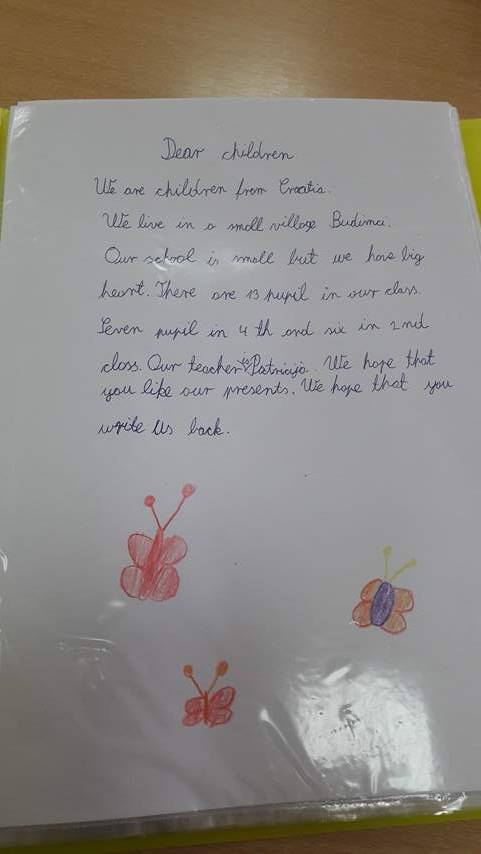 Dear children
We are children from Croatia.
We live in a small village Budimci.
Our school is small but we have big
heart. There are 13 pupil in our class.
Seven pupil in 4 th and six in 2nd
class. Our teacher is Patricija. We hope that
you like our presents. We hope that you
write us back.